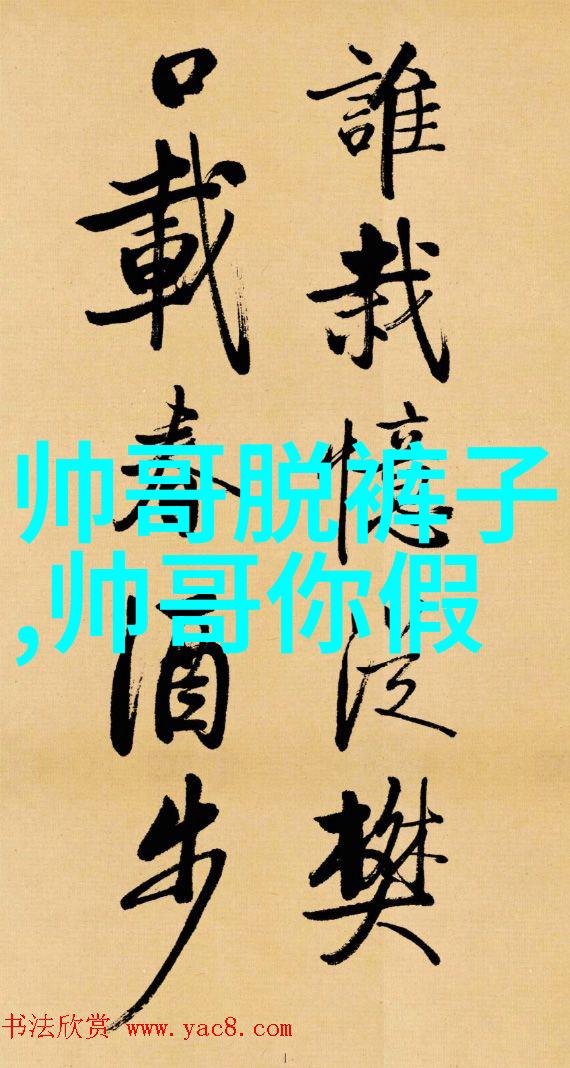 誰栽憶泛樊
口載春酒步
帅哥脱裤子
,帅哥你假
书法欣赏 www.yac8.com